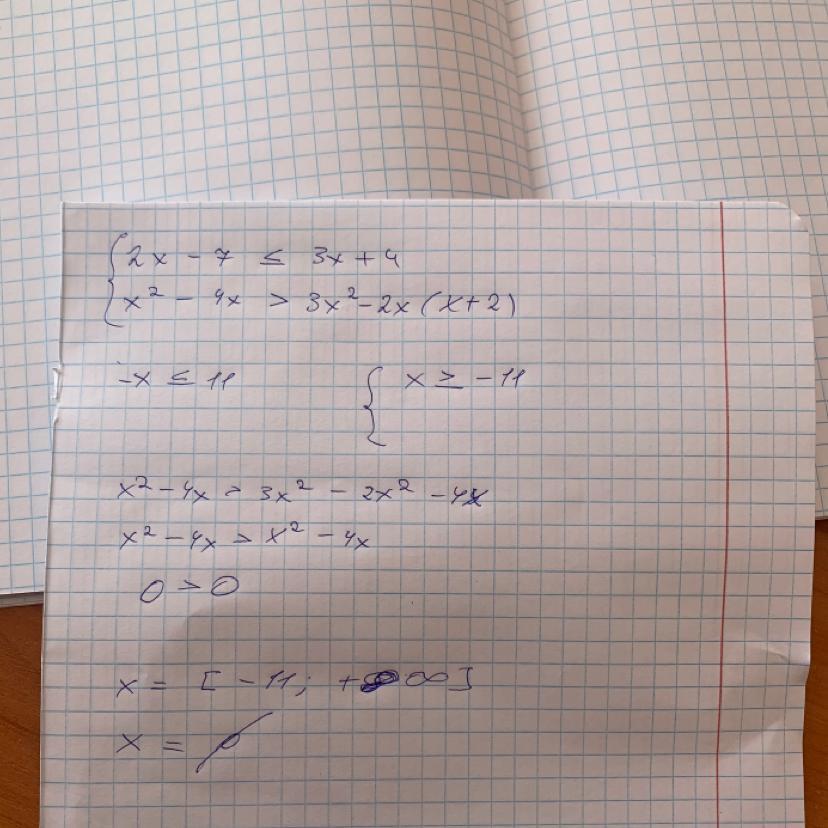 { 2x - 7 ≤ 3x + 4
x² - 4x > 3x² - 2x (x + 2)
-x ≤ 11 { x ≥ - 11
x² - 4x > 3x² - 2x² - 4x
x² - 4x > x² - 4x
0 > 0
x = [ - 11; + ∞ ]
x = ∅